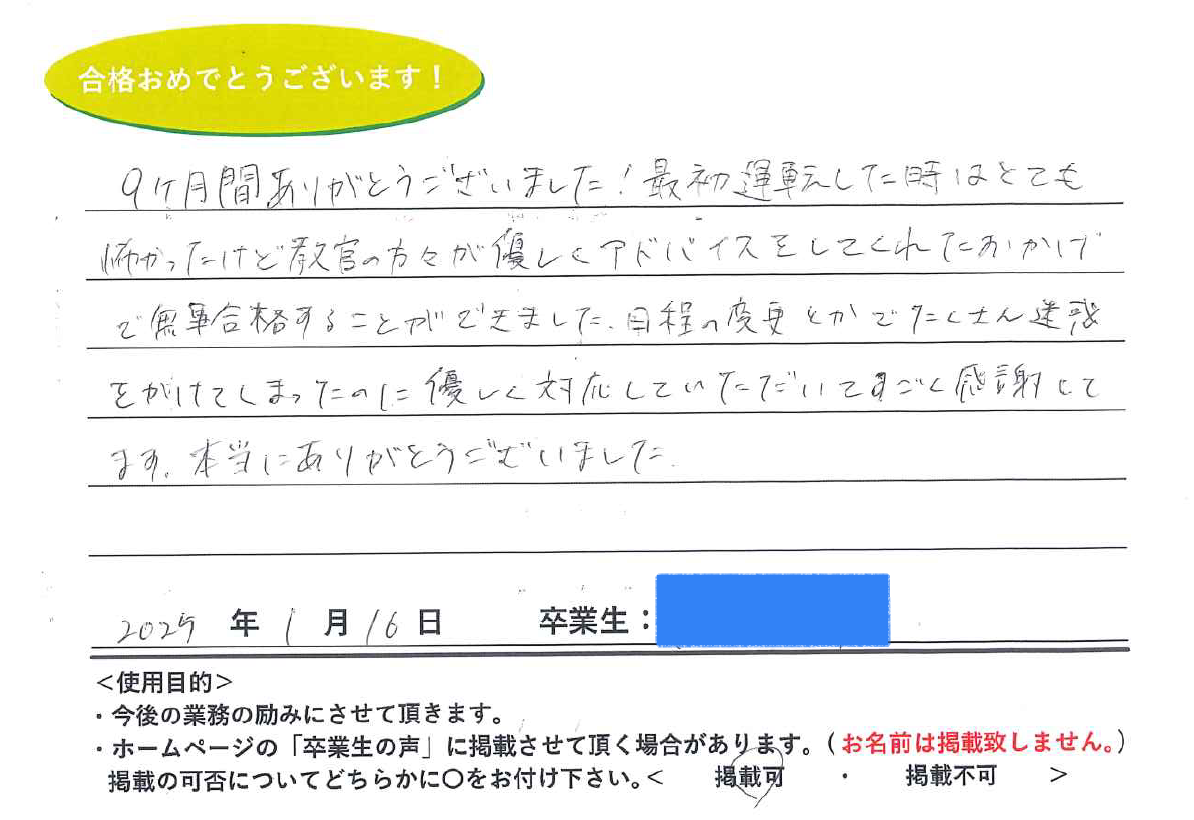 合格おめでとうございます！
9ヶ月間ありがとうございました！最初運転した時はとても
怖かったけど教官の方々が優しくアドバイスをしてくれたおかげ
で無事合格することができました。日程の変更とかでたくさん迷惑
をかけてしまったのに優しく対応していただいてすごく感謝して
ます。本当にありがとうございました。
2025年1月16日 卒業生：
＜使用目的＞
・今後の業務の励みにさせて頂きます。
・ホームページの「卒業生の声」に掲載させて頂く場合があります。（お名前は掲載致しません。）
掲載の可否についてどちらかに〇をお付け下さい。＜ 掲載可 ・ 掲載不可 ＞